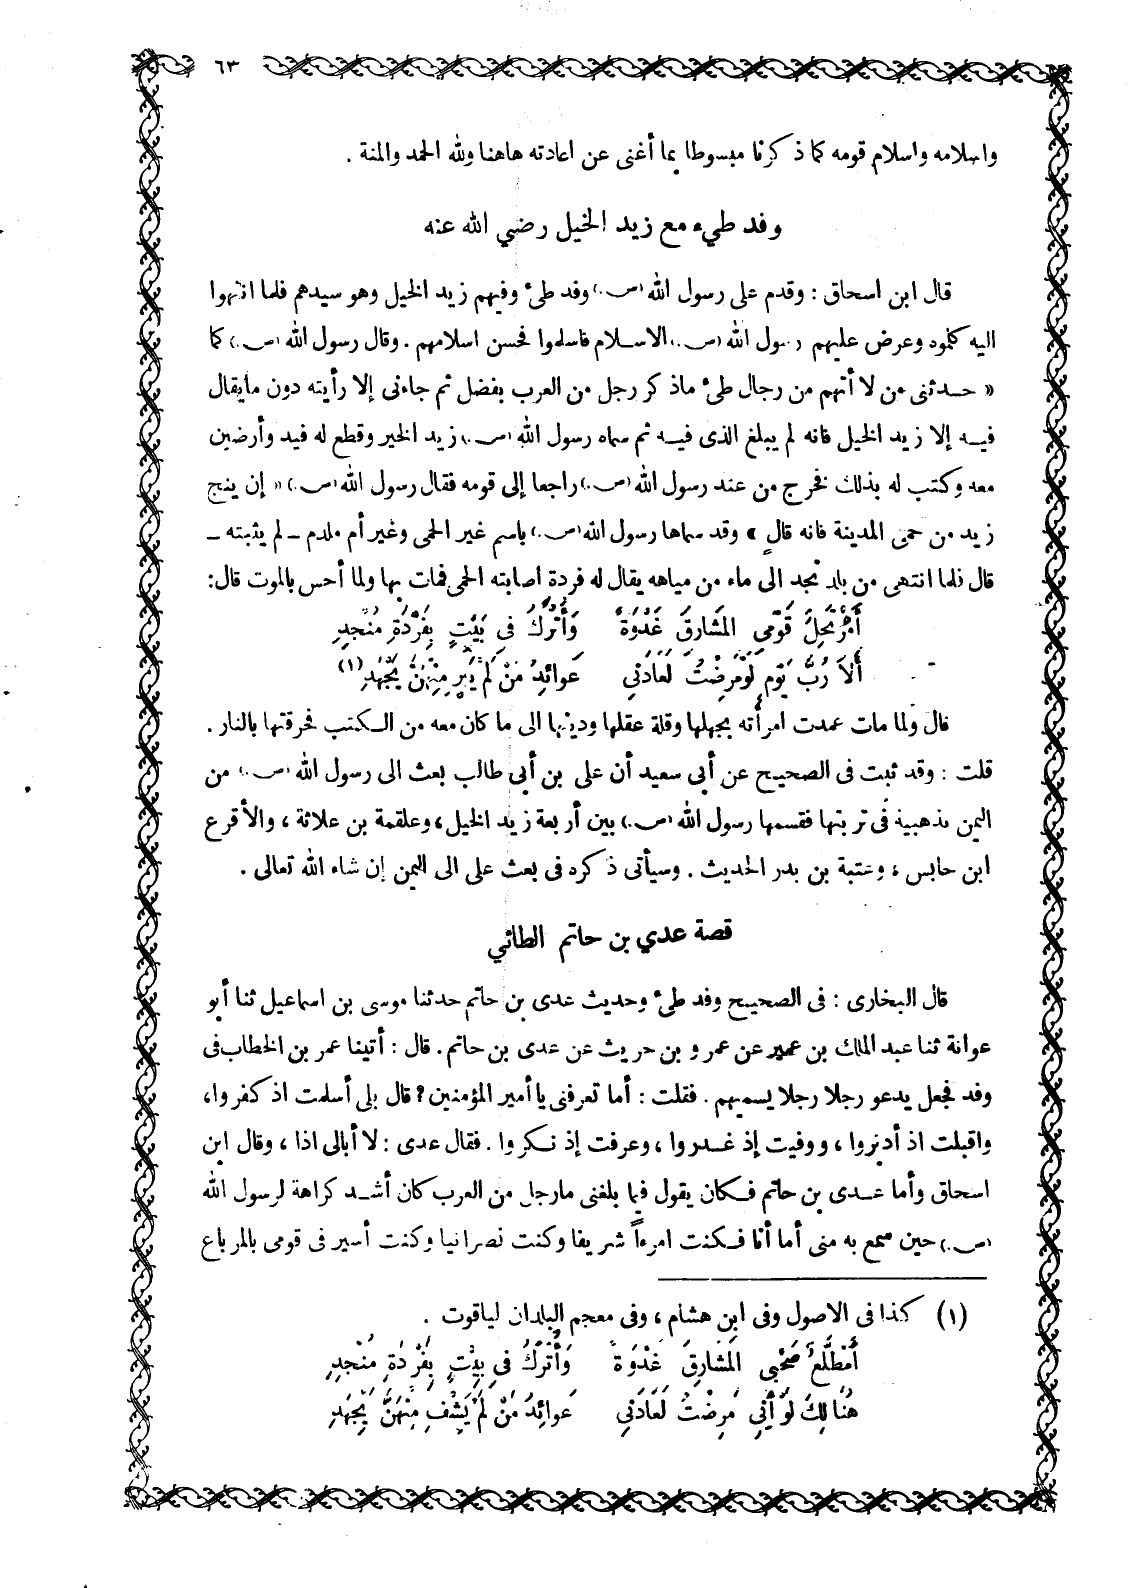 ٦٣
واسلامه واسلام قومه كما ذكرنا مبسوطا بما أغنى عن اعادته هاهنا ولله الحمد والمنة .
وفد طيء مع زيد الخيل رضي الله عنه
قال ابن اسحاق : وقدم على رسول الله (ص.) وفد طئ وفيهم زيد الخيل وهو سيدهم فلما انتهوا
اليه كلموه وعرض عليهم رسول الله (ص.) الاسلام فاسلموا فحسن اسلامهم . وقال رسول الله (ص.) كما
« حدثنى من لا أتهم من رجال طئ ماذكر رجل من العرب بفضل ثم جاءنى إلا رأيته دون مايقال
فيه إلا زيد الخيل فانه لم يبلغ الذى فيه ثم سماه رسول الله (ص.) زيد الخير وقطع له فيد وأرضين
معه وكتب له بذلك فخرج من عند رسول الله (ص.) راجعا إلى قومه فقال رسول الله (ص.) « إن ينج
زيد من حمى المدينة فانه قال » وقد سماها رسول الله (ص.) باسم غير الحمى وغير أم ملدم – لم يثبته –
قال فلما انتهى من بلد نجد الى ماء من مياهه يقال له فردة اصابته الحمى فمات بها ولما أحس بالموت قال:
أَمُرْتَحِلٌ قَوْمِي المَشَارِقَ غَدْوَةً وَأُتْرَكُ فِي بَيْتٍ بِفَرْدَةَ مُنْجِدِ
أَلاَ رُبَّ يَوْمٍ لَوْمَرِضْتُ لَعَادَنِي عَوائِدُ مَنْ لَمْ يَبْرِ مِنْهُنَّ يَجْهَدِ (١)
قال ولما مات عمدت امرأته بجهلها وقلة عقلها ودينها الى ما كان معه من الكتب فحرقتها بالنار .
قلت : وقد ثبت فى الصحيح عن أبى سعيد أن على بن أبى طالب بعث الى رسول الله (ص.) من
اليمن بذهيبة فى تربتها فقسمها رسول الله (ص.) بين أربعة زيد الخيل، وعلقمة بن علاثة ، والأقرع
ابن حابس ، وعتبة بن بدر الحديث . وسيأتى ذكره فى بعث على الى اليمن إن شاء الله تعالى .
قصة عدي بن حاتم الطائي
قال البخارى : فى الصحيح وفد طئ وحديث عدى بن حاتم حدثنا موسى بن اسماعيل ثنا أبو
عوانة ثنا عبد الملك بن عمير عن عمرو بن حريث عن عدى بن حاتم. قال : أتينا عمر بن الخطاب فى
وفد فجعل يدعو رجلا رجلا يسميهم . فقلت : أما تعرفنى يا أمير المؤمنين ? قال بلى أسلمت اذ كفروا،
واقبلت اذ أدبروا ، ووفيت إذ غدروا ، وعرفت إذ نكروا . فقال عدى : لا أبالى اذا ، وقال ابن
اسحاق وأما عدى بن حاتم فكان يقول فيما بلغنى مارجل من العرب كان أشد كراهة لرسول الله
(ص.) حين سمع به منى أما أنا فكنت امرءاً شريفا وكنت نصرانيا وكنت أسير فى قومى بالمرباع
(١) كذا فى الاصول وفى ابن هشام ، وفى معجم البلدان لياقوت .
أَمُطَّلَعٌ صَحْبِي المَشَارِقَ غَدْوَةً وَأُتْرَكُ فِي بِيْتٍ بِفَرْدَةَ مُنْجِدِ
هُنَالِكَ لَوْ أَنِّي مَرِضْتُ لَعَادَنِي عَوائِدُ مَنْ لَمْ يَشْفِ مِنْهُنَّ يَجْهَدِ